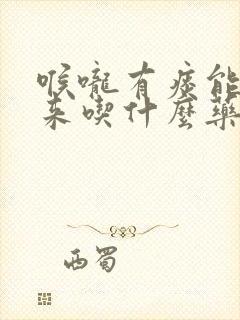 喉嚨有痰能
来喫什麼藥
西蜀